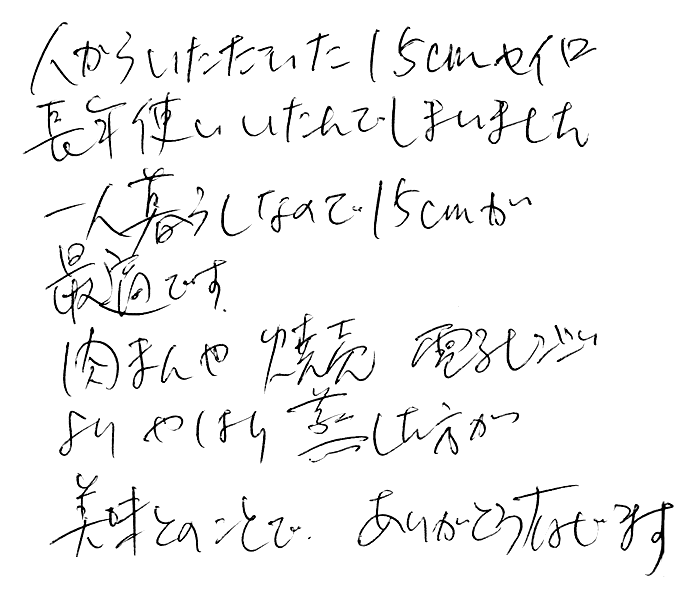 人からいただいた15cmセイロ
長年使いいたんでしまいました
一人暮らしなので15cmが
最適です。
肉まんや 焼売 電子レンジ
よりやはり 蒸した方が
美味とのことで、ありがとうございます